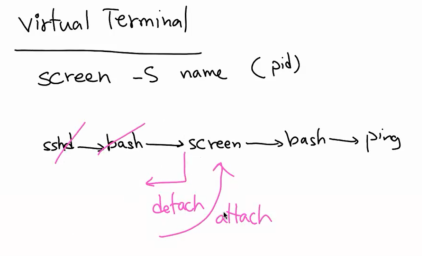 Virtual Terminal
screen -S name (pid)
sshd → bash → screen → bash → ping
detach
attach